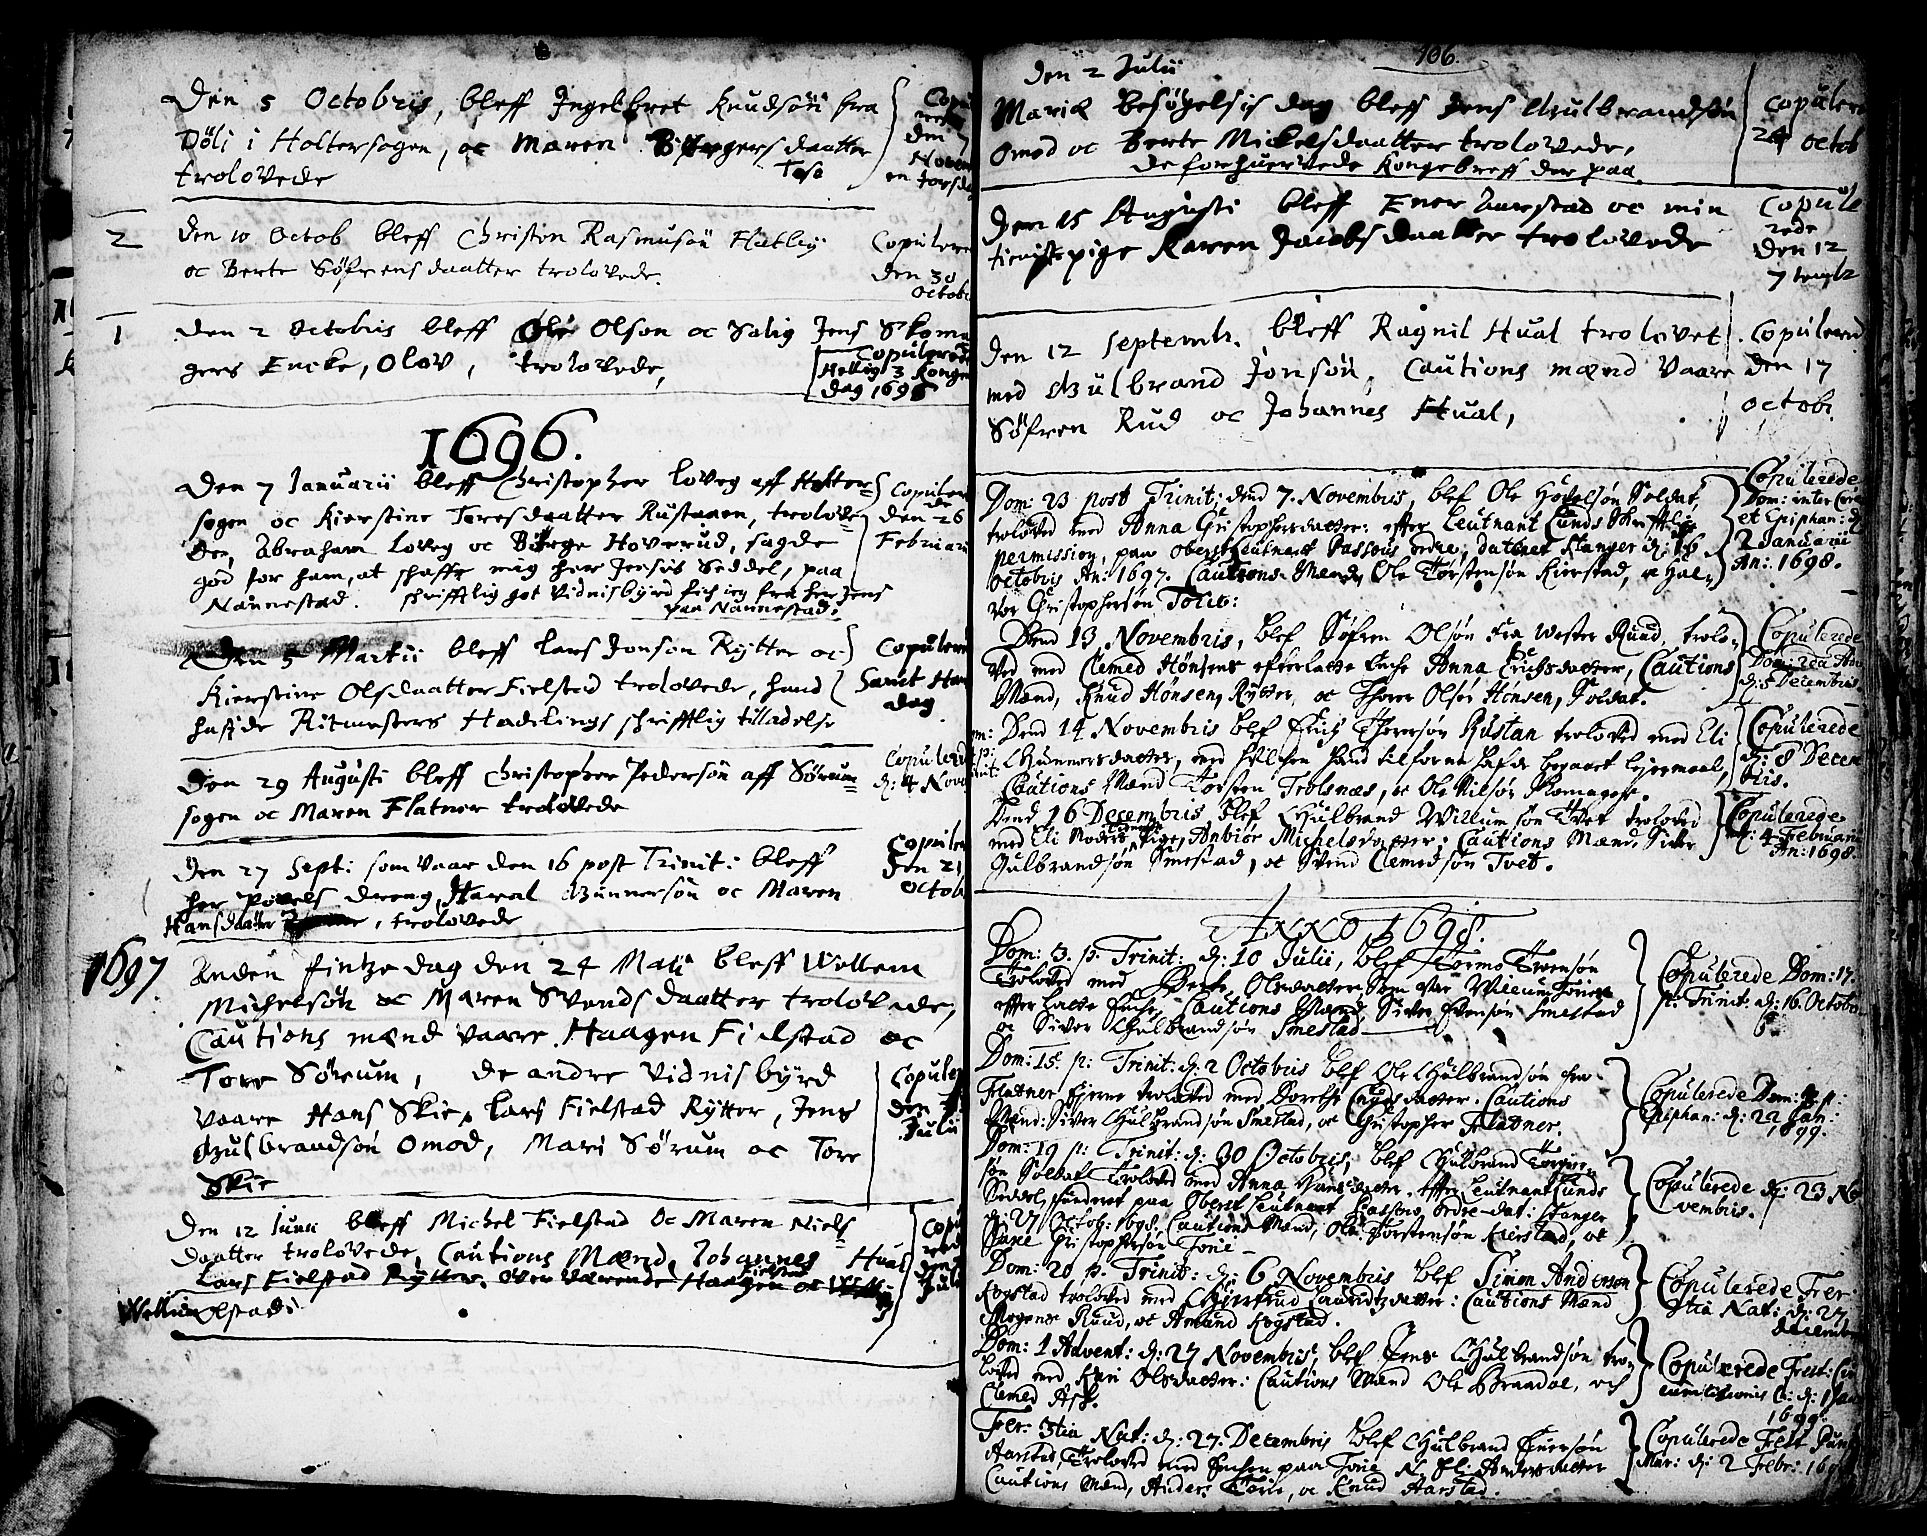 Den 5 Octobris, bleff Ingelbret Knudsön fra
Döli i Holtersogen, oc Maren Börgersdaatter
Tose
trolovede
Copule
rede
den 7
Novem
en torsda
2
Den 10 Octob bleff Christen Rasmusön Flatby
oc Berte Söfrensdaatter trolovede.
Copulere
den 30
Octob
1
Den 2 Octobris bleff Ole Olson oc Salig Jens Skoma
gers Encke, Olov, trolovede,
Copulered
Hellig 3 Konge
dag 1696
1696.
Den 7 Januarii bleff Christopher Loveg aff Holter=
sogen oc Kierstine Toresdaatter Rustaaen, trolove=
den, Abraham Loveg oc Börge Hoverud, sagde
god for ham, at skaffe mig her Jenses Seddel, paa
Nannestad. skrifftlig got Vidnisbyrd fich ieg fra her Jens
paa Nannestad.
Copulere
de
den 26
Februari
Den 5 Martii bleff Lars Jonson Rytter oc
Kierstine Olsdaatter Fielstad trolovede, hand
hafde Ritmesters Haderlings skrifftlig tilladelse
Copulere
Sanct Han
dag
Den 29 Augusti bleff Christopher Pedersön aff Sörum=
sogen oc Maren Flatner trolovede
Copulered
d: 4 Nove
Den 27 Sept: som vaar den 16 post Trinit: bleff
her Povels dreng, Haral Gunnersön oc Maren
Hansdaatter, trolovede
Copulere
den 21
Octob
1697
Anden Pintze dag den 24 Maii bleff Wellem
Michelsön oc Maren Svendsdaatter trolovede,
Cautions mænd vaare Haagen Fielstad oc
Tore Sörum, de andre Vidnisbyrd
vaare Hans Skie, Lars Fielstad Rytter, Jens
Gulbrandsön Omod, Mari Sörum oc Tore
Skie
Copulere
den
Julii
Den 12 Junii bleff Michel Fielstad oc Maren Niels=
daatter trolovede, Cautions Mænd, Johannes Hual
Lars Fielstad Rytter. Over værende Haagen Fielstad oc
Wellum Olstad.
Copu
rede
den
Juli
106.
den 2 Julii
Mariæ Besögelsis dag bleff Jens Gulbrandsön
Omod oc Berte Mickelsdaatter trolovede,
de forhuervede Kongebreff der paa.
Copulere
24 Octob
Den 15 Augusti bleff Ener Aarstad oc min
tienistepige Karen Jacobsdaatter trolovede
Copule
rede
Den 12
7 temb
Den 12 Septemb. bleff Ragnil Hual trolovet
med Gulbrand Jonsön, Cautions mænd vaare
Söfren Rud oc Johannes Hual,
Copulered
den 17
Octob.
Dom: 23 post Trinit: dend 7. Novembris, blef Ole Hovelsön Soldat,
troloved med Anna Christophersdatter: effter Leutnant Lunds skrifftlige
permission, paa Oberst Leutnant Passous ordre, datteret Stanger d: 16
Octobris An: 1697. Cautions-Mænd, Ole Torstensön Kierstad, oc Hal=
vor Christophersön Tolit:
Copulerede
Dom: inter Circ
et Epiphan: d
2 Januarii
An: 1698.
Dend 13. Novembris, blef Söfren Olsön fra Wester Ruud, trolo=
ved med Clemed Hönsens efterlatte Enche Anna Erichsdatter, Cautions
Mænd, Knud Hönsen, Rytter, oc Thorer Olsön Hönsen, Soldat.
Copulerede
Dom: 2da Ad
d: 5 Decembris
Dend 14 Novembris blef Erich Thoresön Rustan troloved med Eli
Gunnersdatter, med hvilchen hand tilforne hafde begaaet Lejermaal,
Cautions Mænd Torsten Trolsnæs, oc Ole Nilsön Skomager.
Copulerede
d: 8 Decem
bris.
Dend 16 Decembris blef Gulbrand Willumsön Tvet troloved
med Eli Moders Pige, Anbiör Michelsdatter: Cautions Mænd, Siver
Gulbrandsön Smestad, oc Svend Clemedsön Tvet.
Copulerede
d: 4 Februarii
An: 1698.
Anno 1698.
Dom: 3. p. Trinit: d: 10 Julii, blef Tormo Svensön
Troloved med Berte Olsdatter Som var Willum
effterlatte Enche, Cautions Mænd Siver Evensön Smestad
oc Siver Gulbrandsön Smestad
Copulerede Dom: 17.
p: Trinit: d: 16. Octob
Dom: 15. p: Trinit: d: 2 Octobris blef Ole Gulbrandsön fra
Flatner Ejerne troloved med Dorethe Knudsdatter. Cautions
Mænd: Siver Gulbrandsön Smestad, oc Christopher Flatner.
Copulerede Dom: p:
Epiphan: d: 22 Jan:
1699.
Dom: 19 p: Trinit: d: 30 Octobris, blef Gulbrand
sön Soldat Troloved med Anna Hansdatter. Effter Leutnant Lunds
Seddel, funderet paa Oberst Leutnant Passous Ordre dat: Stanger
d: 27 Octob: 1698. Cautions Mænd, Ole Torstensön Kierstad, oc
Saxe Christophersön Tonie
Copulerede d: 23 No
vembris.
Dom: 20 p. Trinit: d: 6 Novembris blef Simen Andersön
Rogstad troloved med Giertrud Lauridtzdatter: Cautions Mænd
Mogens Ruud, oc Amund Rogstad.
Copulerede Fer:
3tia Nat: d: 27
Decemb
Dom: 1 Advent: d: 27 Novembris, blef Jens Gulbrandsön tro=
loved med Kari Olsdatter: Cautions Mænd Ole Braadal, och
Clemed Ask.
Copulerede Fest: Cir
cumcisionis d: 1 Jan
1699.
Fer: 3tia Nat: d: 27. Decembris blef Gulbrand Enersön
Aarstad, Troloved med Enchen paa Tonie N. Eli Andersdatter
Cautions Mænd, Anders Tonie, oc Knud Aarstad.
Copulerede Fest Puri
Mar: d: 2 Febr: 169